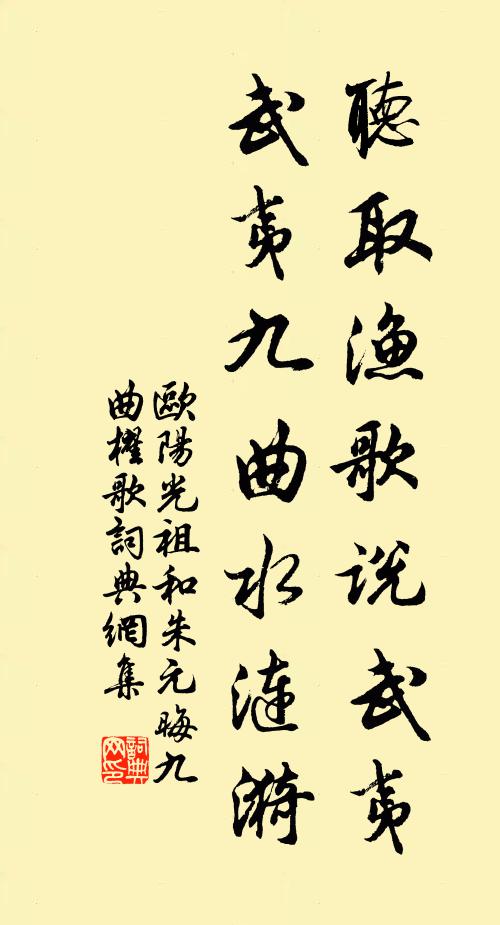 聽取漁歌說武夷
武夷九曲水漣漪
歐陽光祖和朱元晦九
曲櫂歌詞典網集
詞典網印